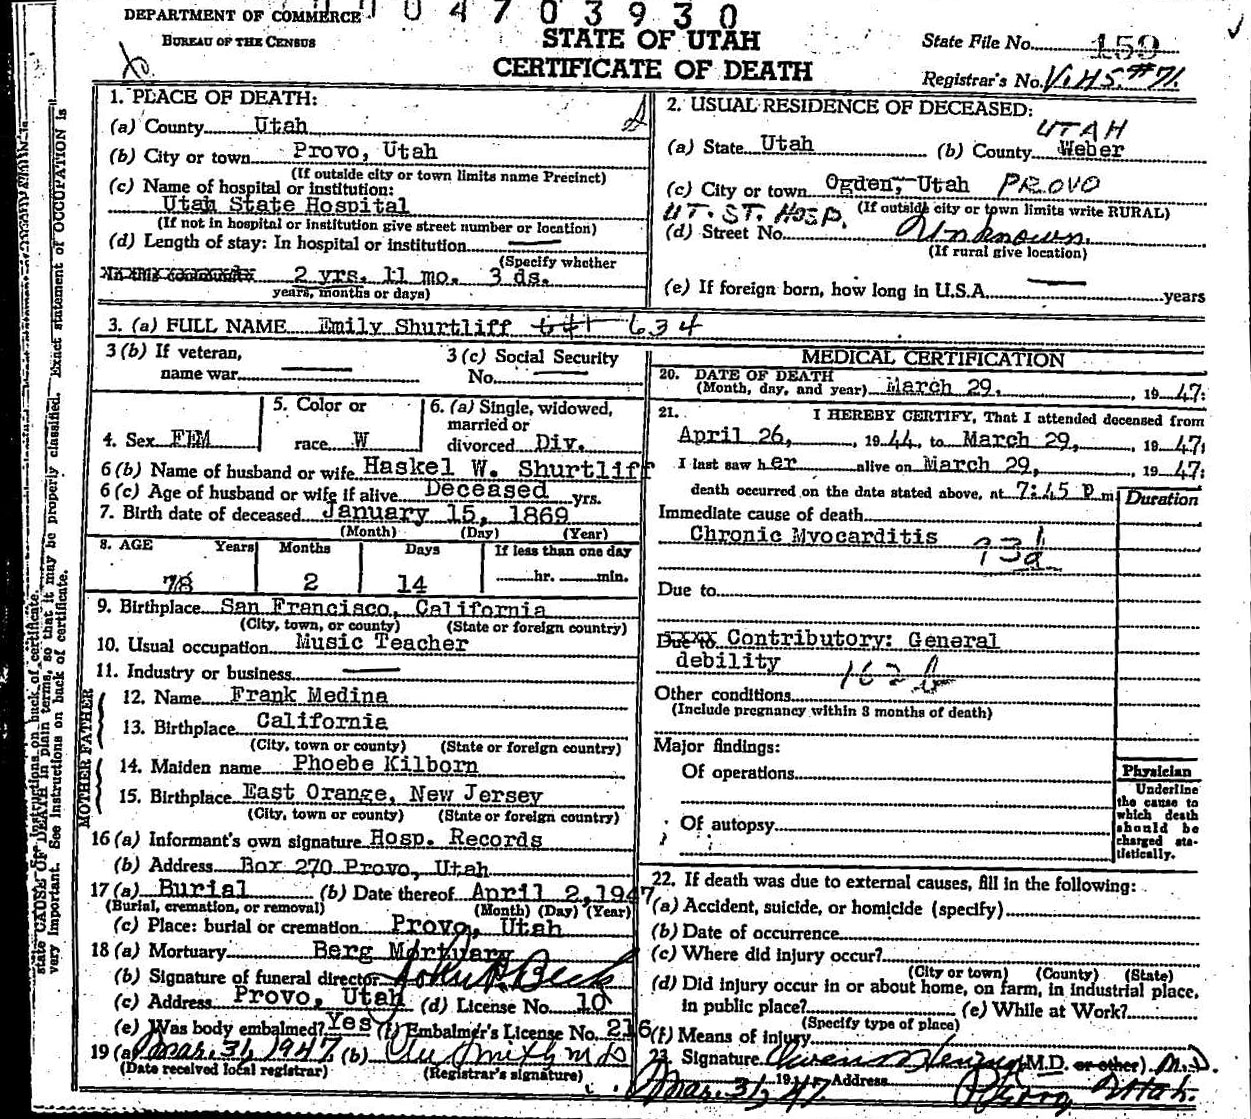 DEPARTMENT OF COMMERCE
BUREAU OF THE CENSUS
0 4 7 0 3 9 3 0
STATE OF UTAH
CERTIFICATE OF DEATH
State File No. 159
Registrar's No. V.H.S. #71.
1. PLACE OF DEATH:
(a) County Utah
(b) City or town Provo, Utah
(If outside city or town limits name Precinct)
(c) Name of hospital or institution:
Utah State Hospital
(If not in hospital or institution give street number or location)
(d) Length of stay: In hospital or institution
(Specify whether
2 yrs. 11 mo. 3 ds.
years, months or days)
2. USUAL RESIDENCE OF DECEASED:
UTAH
(a) State Utah (b) County Weber
(c) City or town Ogden, Utah PROVO
UT. ST. HOSP. (If outside city or town limits write RURAL)
(d) Street No. Unknown.
(If rural give location)
(e) If foreign born, how long in U.S.A. years
3. (a) FULL NAME Emily Shurtliff 641 634
3 (b) If veteran,
name war
3 (c) Social Security
No.
4. Sex FEM
5. Color or
race W
6. (a) Single, widowed,
married or
divorced Div.
6 (b) Name of husband or wife Haskel W. Shurtliff
6 (c) Age of husband or wife if alive Deceased yrs.
7. Birth date of deceased January 15, 1869
(Month) (Day) (Year)
8. AGE Years Months Days If less than one day
78 2 14 hr. min.
9. Birthplace San Francisco, California
(City, town, or county) (State or foreign country)
10. Usual occupation Music Teacher
11. Industry or business
FATHER
12. Name Frank Medina
13. Birthplace California
(City, town or county) (State or foreign country)
MOTHER
14. Maiden name Phoebe Kilborn
15. Birthplace East Orange, New Jersey
(City, town or county) (State or foreign country)
16 (a) Informant's own signature Hosp. Records
(b) Address Box 270 Provo, Utah
17 (a) Burial (b) Date thereof April 2, 1947
(Burial, cremation, or removal) (Month) (Day) (Year)
(c) Place: burial or cremation Provo, Utah
18 (a) Mortuary Berg Mortuary
(b) Signature of funeral director
(c) Address Provo, Utah (d) License No. 10
(e) Was body embalmed? Yes (f) Embalmer's License No. 216
19 (a) Mar. 31, 1947 (b)
(Date received local registrar) (Registrar's signature)
MEDICAL CERTIFICATION
20. DATE OF DEATH
(Month, day, and year) March 29, 1947:
21. I HEREBY CERTIFY, That I attended deceased from
April 26, 1944, to March 29, 1947;
I last saw her alive on March 29, 1947:
death occurred on the date stated above, at 7:45 P m
Duration
Immediate cause of death
Chronic Myocarditis 93d
Due to
Due to Contributory: General
debility 162b
Other conditions
(Include pregnancy within 3 months of death)
Major findings:
Of operations
Of autopsy
Physician
Underline
the cause to
which death
should be
charged sta-
tistically.
22. If death was due to external causes, fill in the following:
(a) Accident, suicide, or homicide (specify)
(b) Date of occurrence
(c) Where did injury occur?
(City or town) (County) (State)
(d) Did injury occur in or about home, on farm, in industrial place,
in public place? (e) While at Work?
(Specify type of place)
(f) Means of injury
23. Signature (M.D. or other) M.D.
Mar. 31, 1947 Address Utah.